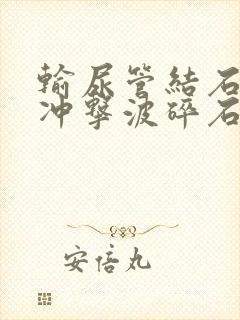 輸尿管結石
冲擊波碎石
安倍丸